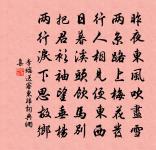 昨夜東風吹盡雪
兩京路上梅花發
行人相見便東西
日暮溪頭飲馬別
把君衫袖望垂楊
兩行淚下思故鄉
李端送客東歸